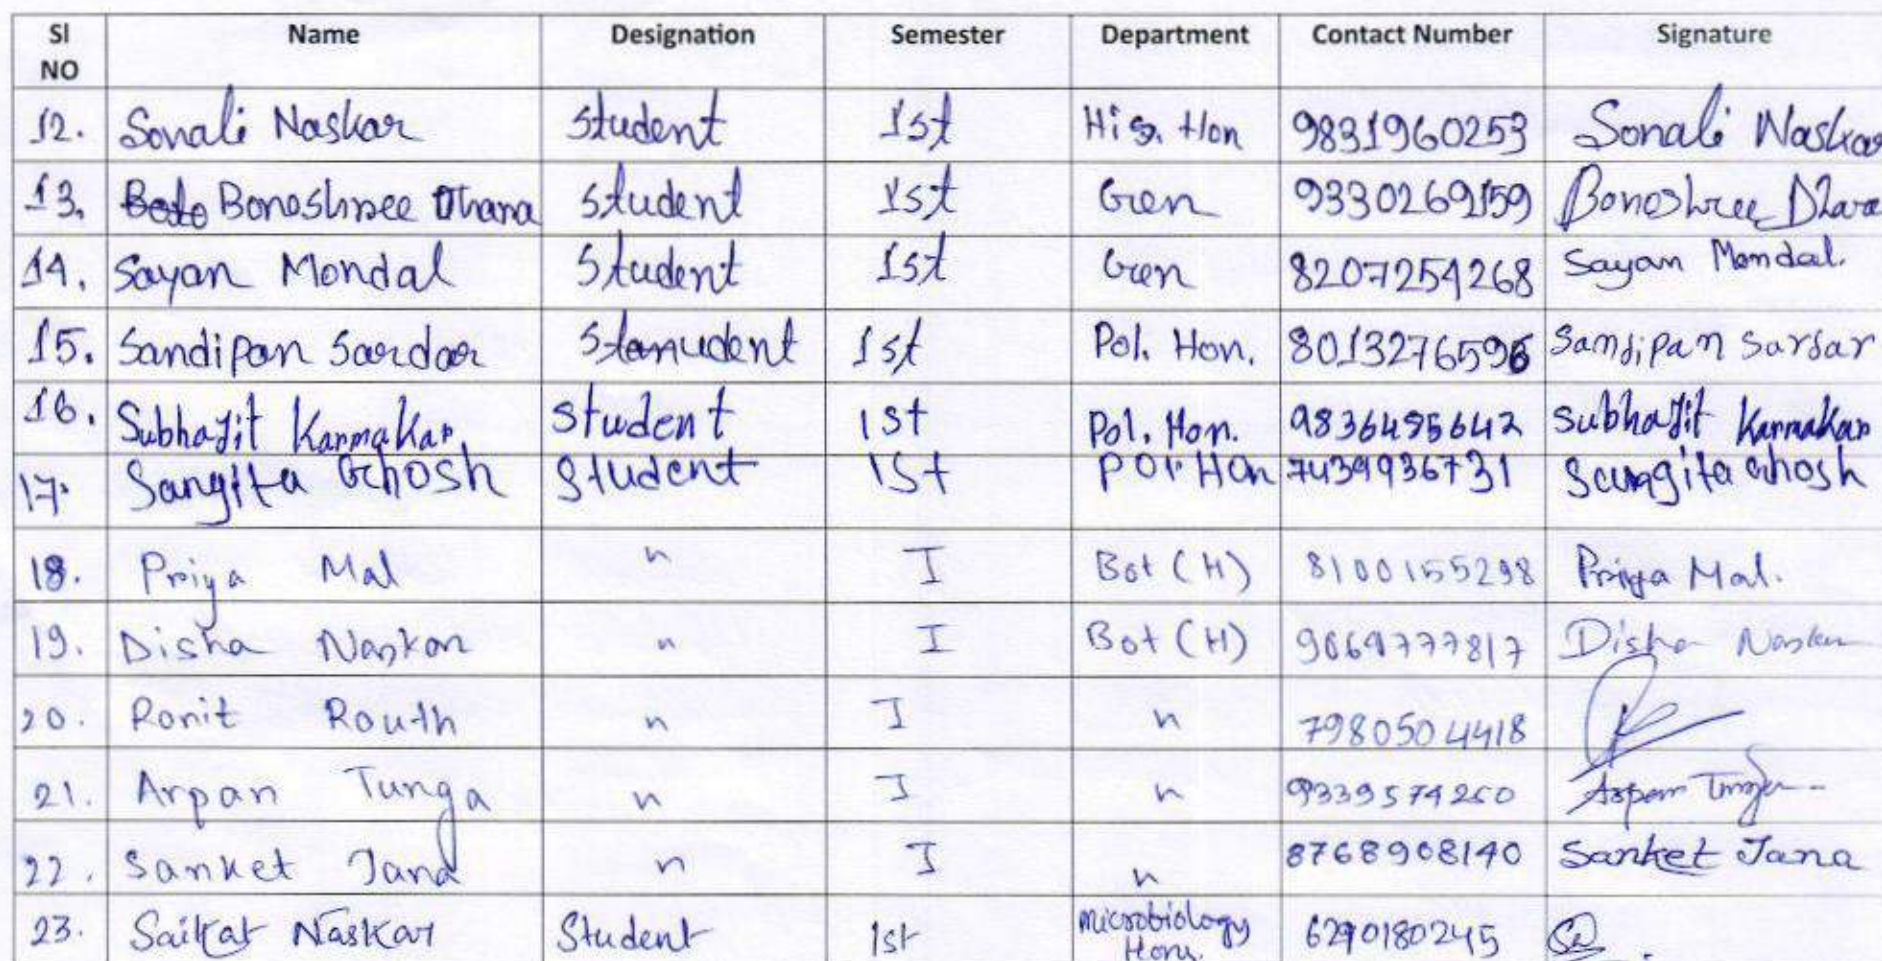 SI NO Name Designation Semester Department Contact Number Signature
12. Sonali Naskar Student 1st His. Hon 9831960253 Sonali Naskar
13. Bonoshree Dhara Student 1st Gen 9330269159 Bonoshree Dhara
14. Sayan Mondal Student 1st Gen 8207254268 Sayan Mondal.
15. Sandipan Sardar 1st Pol. Hon. 8013276596 Sandipan Sardar
16. Subhajit Karmakar Student 1st Pol. Hon. 9836495642 Subhajit Karmakar
17. Sangita Ghosh Student 1st Pol. Hon 7439936731 Sangita Ghosh
18. Priya Mal " I Bot (H) 8100155298 Priya Mal.
19. Disha Naskar " I Bot (H) Disha Naskar
20. Ronit Routh " I " 7980504418
21. Arpan Tunga " I " 9339574260 Arpan Tunga
22. Sanket Jana " I " 8768908140 Sanket Jana
23. Saikat Naskar Student 1st Microbiology Hons. 6290180245